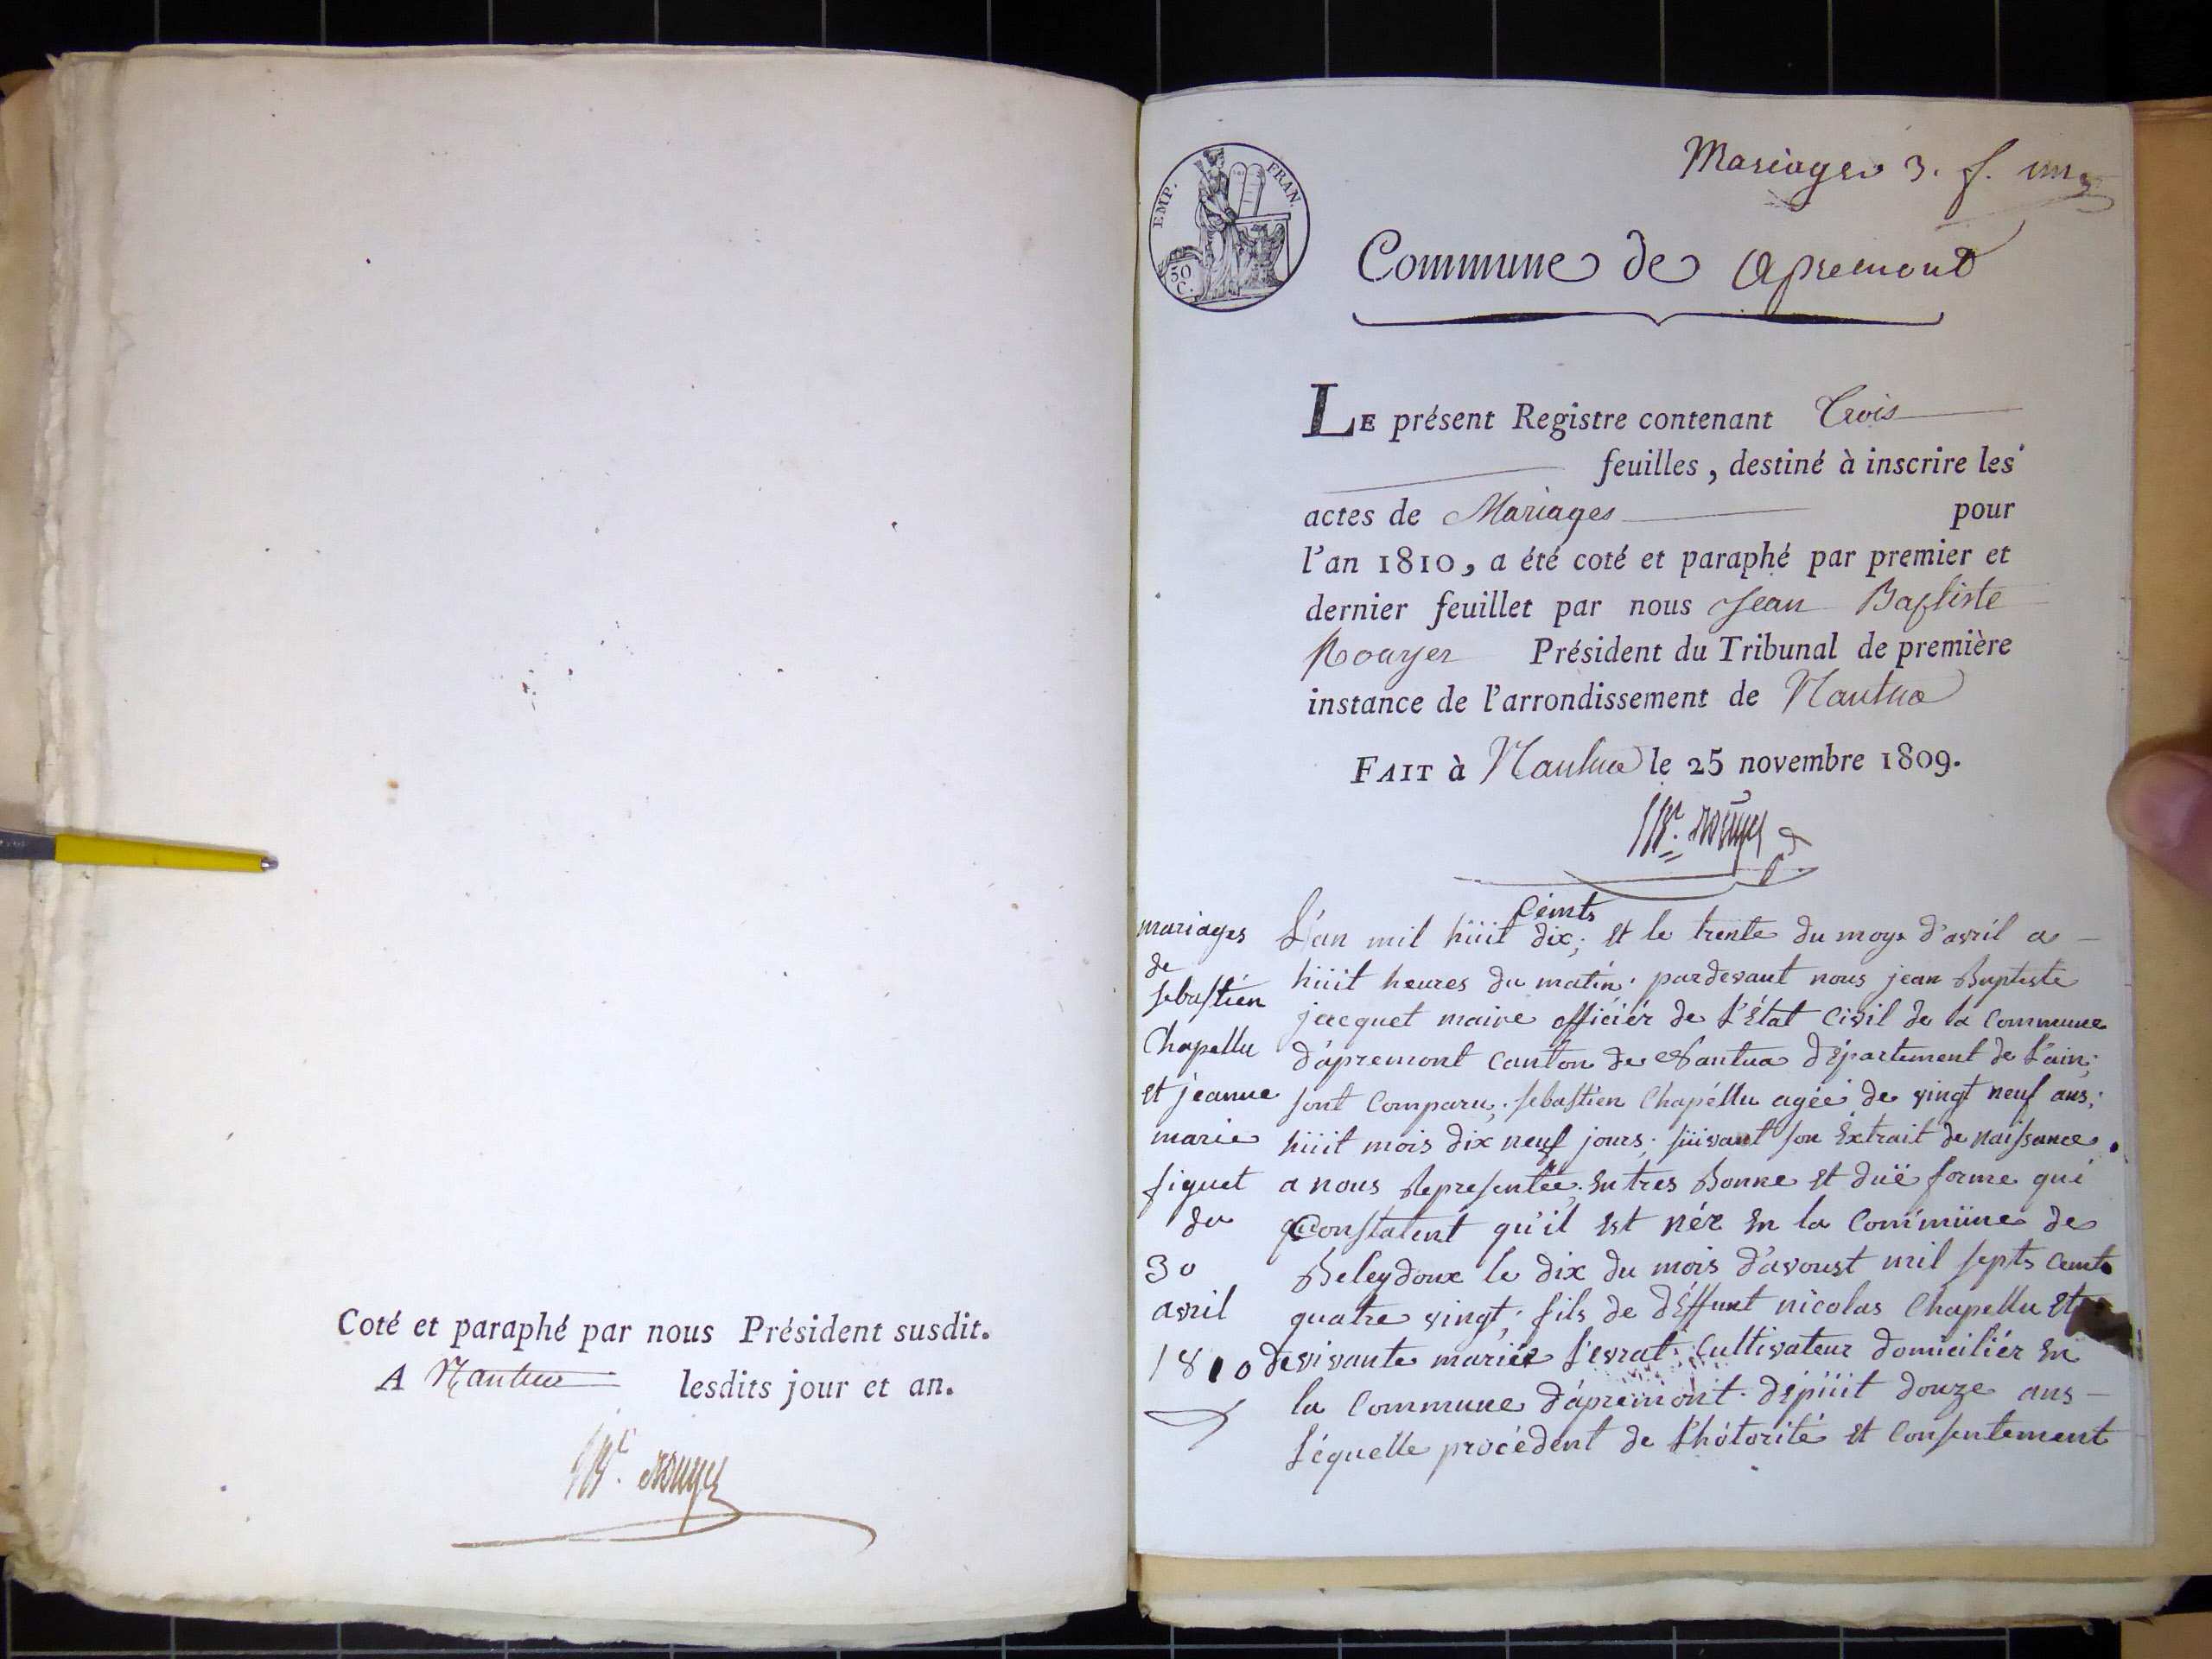 Coté et paraphé par nous Président susdit.
A Nantua lesdits jour et an.
JBte. Rouyer
Mariages 3. f. 
EMP. FRAN.
50
C.
Commune de Apremont
LE présent Registre contenant Trois
feuilles, destiné à inscrire les
actes de Mariages pour
l'an 1810, a été coté et paraphé par premier et
dernier feuillet par nous Jean Baptiste
Rouyer Président du Tribunal de première
instance de l'arrondissement de Nantua
FAIT à Nantua le 25 novembre 1809.
JBte. Rouyer
mariages
de
sebastien
Chapellu
et jeanne
marie
figuet
du
30
avril
1810
Cents
L'an mil hüit dix; et le trente du moys d'avril a
hüit heures du matin; pardevant nous jean Baptiste
jacquet maire officiér de L'état Civil de la Commune
d'apremont Canton de Nantua département de L'ain;
sont Comparu; sebastien Chapéllu agée de vingt neuf ans;
hüit mois dix neuf jours; süivant son Extrait de naissance
a nous Représentée; En tres Bonne et düë forme qui
Constatent qu'il est nér En la Commüne de
Beleydoux le dix du mois d'avoust mil septs Cents
quatre vingt; fils de déffunt nicolas Chapellu et
de vivante mariér L'evrat; Cultivateur domiciliér En
la Commune d'apremont. dépüit douze ans
Léquelle procédent de L'hotorité et Consentement